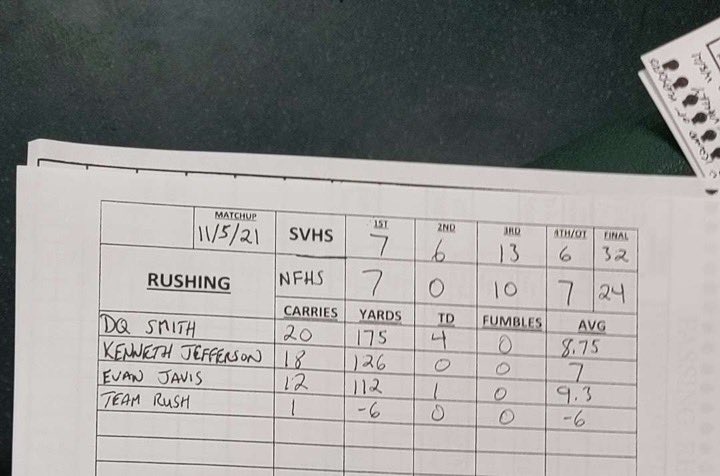 MATCHUP 1ST 2ND 3RD 4TH/OT FINAL
11/5/21 SVHS 7 6 13 6 32
RUSHING NFHS 7 0 10 7 24
CARRIES YARDS TD FUMBLES AVG
DQ SMITH 20 175 4 0 8.75
KENNETH JEFFERSON 18 126 0 0 7
EVAN JAVIS 12 112 1 0 9.3
TEAM RUSH 1 -6 0 0 -6